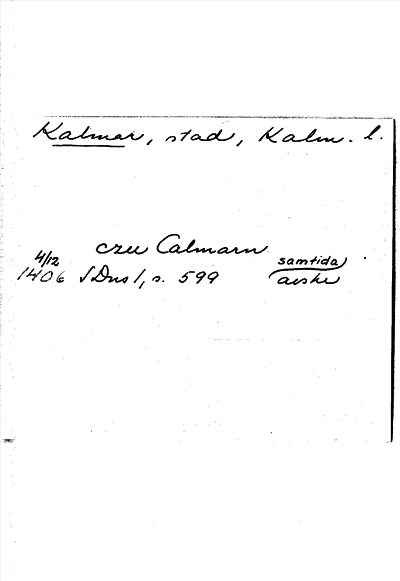 Kalmar, stad, Kalm. l.
czu Calmarn
4/12 samtida
1406 SDns 1, s. 599 avskr